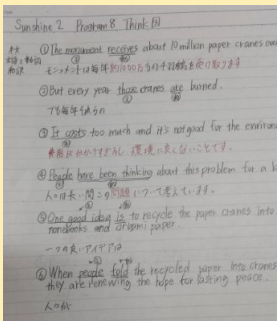 Sunshine 2 Program 8 Think ④
本文
主語と動詞
和訳
① The monument receives about 10 million paper cranes
モニュメントは毎年約1000万もの千羽鶴を受け取ります
② But every year those cranes are burned.
でも毎年
③ It costs too much and it's not good for the
費用がかかりすぎるし 環境に良くないことです。
④ People have been thinking about this problem for a
人々は長い間この問題について考えています。
⑤ One good idea is to recycle the paper cranes into
notebooks and origami paper.
一つの良いアイデアは
⑥ When people fold the recycled paper into cranes
they are renewing the hope for lasting peace.
人々が